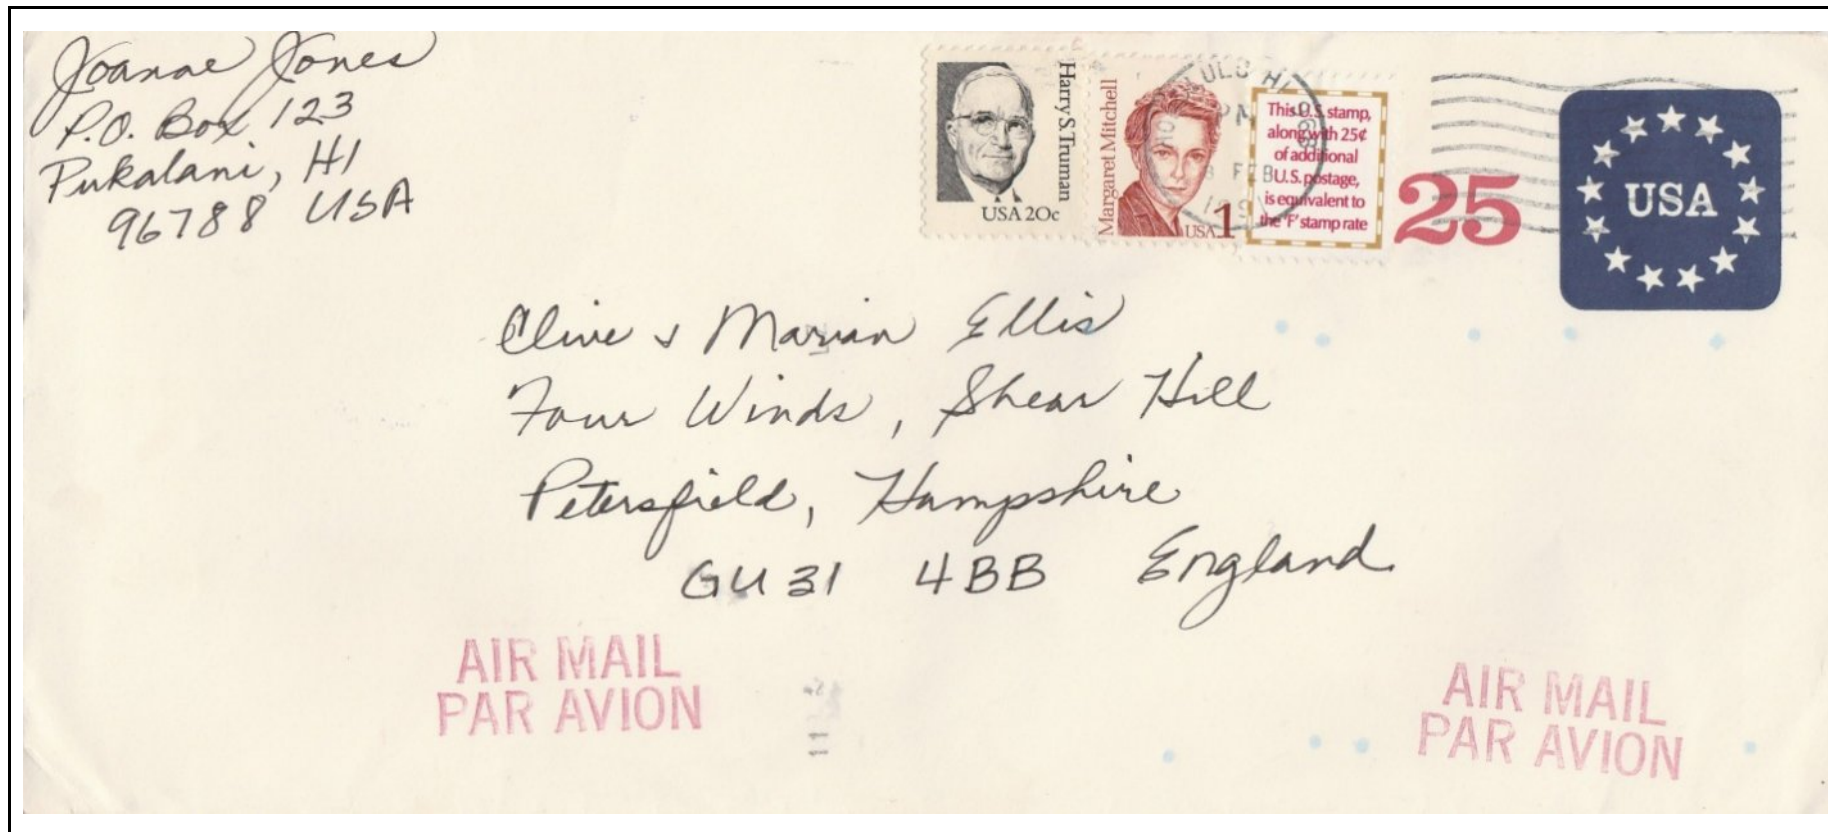 Joanne Jones
P.O. Box 123
Pukalani, HI
96788 USA
Harry S. Truman
USA 20c
Margaret Mitchell
USA 1
This U.S. stamp,
along with 25¢
of additional
U.S. postage,
is equivalent to
the 'F' stamp rate
HI
PM
FEB
25
USA
Clive & Marian Ellis
Four Winds, Shear Hill
Petersfield, Hampshire
GU31 4BB England
AIR MAIL
PAR AVION
AIR MAIL
PAR AVION
11